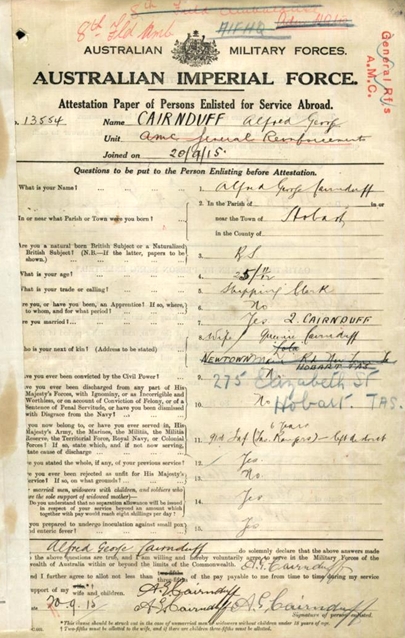 8th Field Ambulance
8th Fld Amb
AIFHQ
General Rf/s
A.M.C.
AUSTRALIAN MILITARY FORCES.
AUSTRALIAN IMPERIAL FORCE.
Attestation Paper of Persons Enlisted for Service Abroad.
13554 Name CAIRNDUFF Alfred George
Unit AMC General Reinforcements
Joined on 20/9/15
Questions to be put to the Person Enlisting before Attestation.
What is your Name? 1. Alfred George Cairnduff
In or near what Parish or Town were you born? 2. In the Parish of in or
near the Town of Hobart
in the County of
Are you a natural born British Subject or a Naturalised
British Subject? (N.B.—If the latter, papers to be
shown.) 3.
What is your age? 4.
What is your trade or calling? 5. Shipping Clerk
Are you, or have you been, an Apprentice? If so, where,
to whom, and for what period? 6. No
Are you married? 7. Yes CAIRNDUFF
8. Wife Queenie Cairnduff
Who is your next of kin? (Address to be stated)
NEWTOWN Rd
HOBART TAS
275 Elizabeth St
Hobart. TAS.
Have you ever been convicted by the Civil Power? 9. No
Have you ever been discharged from any part of His
Majesty's Forces, with Ignominy, or as Incorrigible and
Worthless, or on account of Conviction of Felony, or of a
Sentence of Penal Servitude, or have you been dismissed
with Disgrace from the Navy? 10. No
Do you now belong to, or have you ever served in, His
Majesty's Army, the Marines, the Militia, the Militia
Reserve, the Territorial Force, Royal Navy, or Colonial
Forces? If so, state which, and if not now serving,
state cause of discharge 11. 6 years
Have you stated the whole, if any, of your previous service? 12. Yes
Have you ever been rejected as unfit for His Majesty's
Service? If so, on what grounds? 13. No
married men, widowers with children, and soldiers who
are the sole support of widowed mother—
Do you understand that no separation allowance will be issued
in respect of your service beyond an amount which
together with pay would reach eight shillings per day? 14. Yes
Are you prepared to undergo inoculation against small pox
and enteric fever? 15. Yes
Alfred George Cairnduff do solemnly declare that the above answers made
the above questions are true, and I am willing and hereby voluntarily agree to serve in the Military Forces of the
Commonwealth of Australia within or beyond the limits of the Commonwealth. A.G. Cairnduff
And I further agree to allot not less than of the pay payable to me from time to time during my service
support of my wife and children. A G Cairnduff
20.9.15 A G Cairnduff A G Cairnduff
Signature of person enlisted.